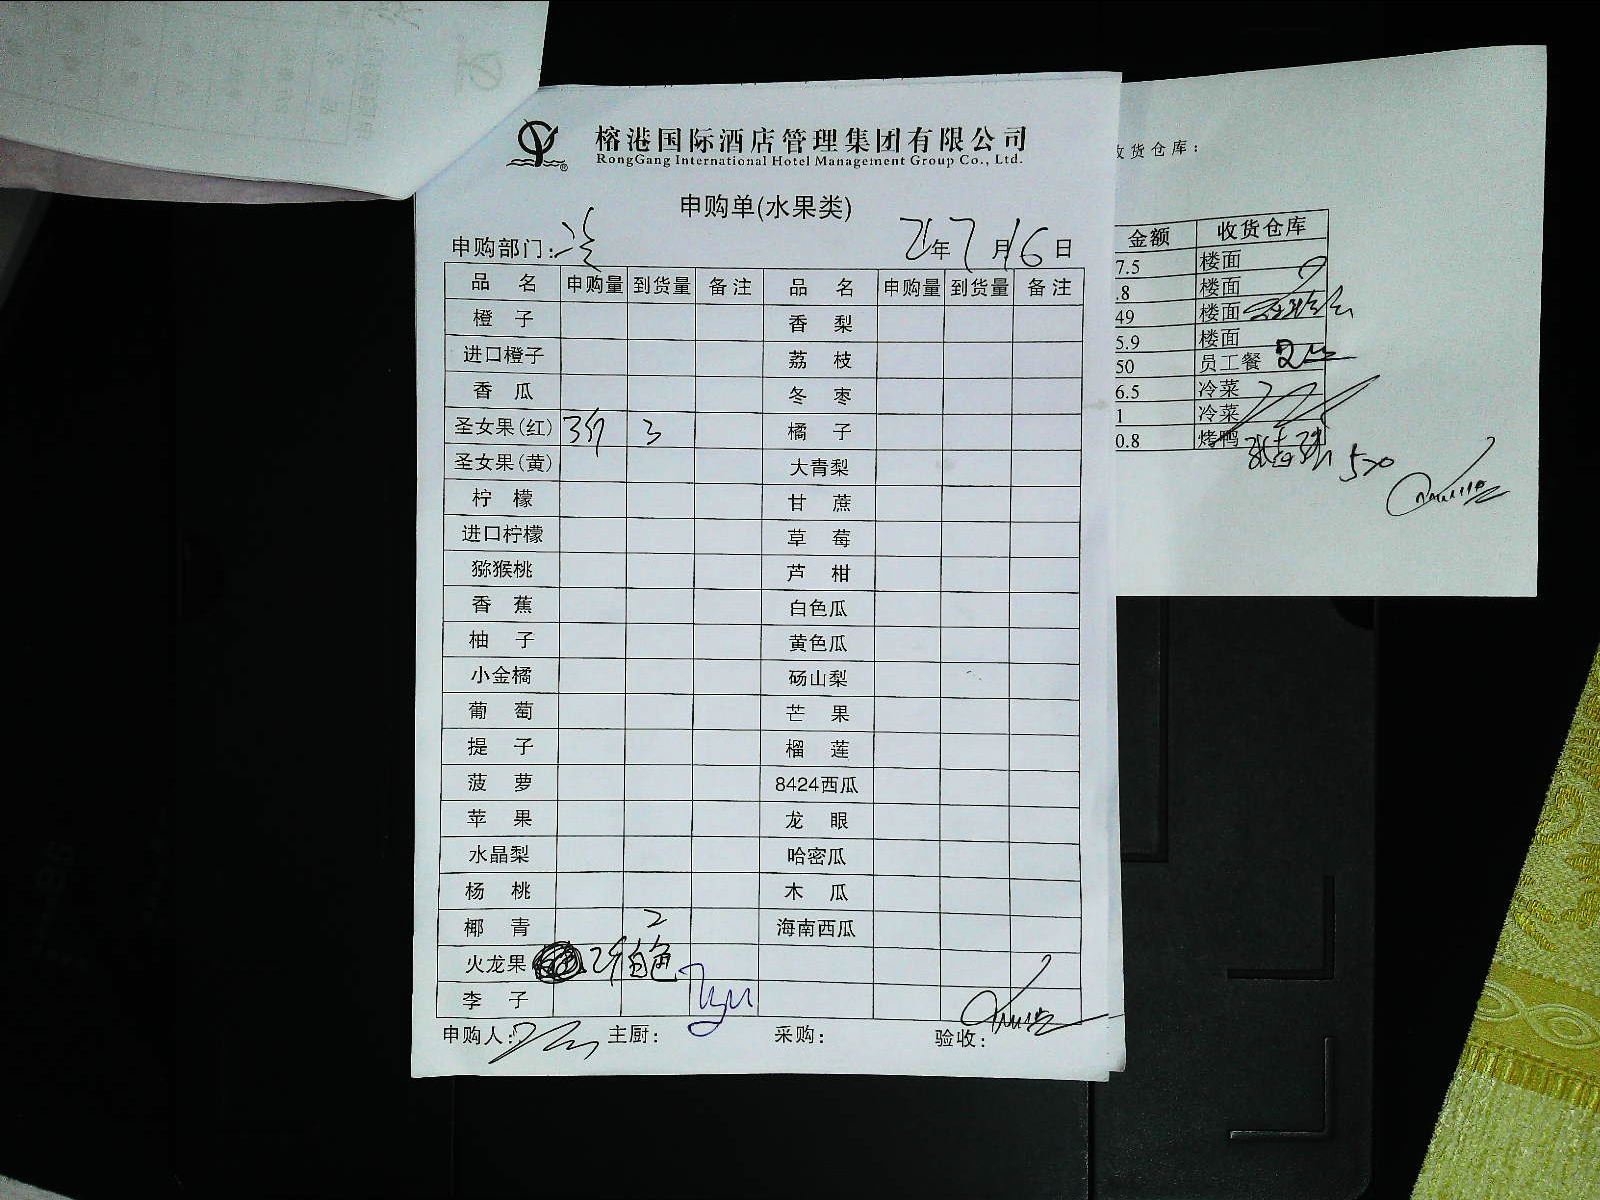 榕港国际酒店管理集团有限公司
RongGang International Hotel Management Group Co., Ltd.
申购单(水果类)
申购部门:冷 21年7月16日
品名 申购量 到货量 备注 品名 申购量 到货量 备注
橙子 香梨
进口橙子 荔枝
香瓜 冬枣
圣女果(红) 3斤 3 橘子
圣女果(黄) 大青梨
柠檬 甘蔗
进口柠檬 草莓
猕猴桃 芦柑
香蕉 白色瓜
柚子 黄色瓜
小金橘 砀山梨
葡萄 芒果
提子 榴莲
菠萝 8424西瓜
苹果 龙眼
水晶梨 哈密瓜
杨桃 木瓜
椰青 2 海南西瓜
火龙果 2斤 白色
李子
申购人: 主厨: 采购: 验收:
收货仓库:
金额 收货仓库
7.5 楼面
.8 楼面
49 楼面
5.9 楼面
50 员工餐
6.5 冷菜
1 冷菜
0.8 烤鸭